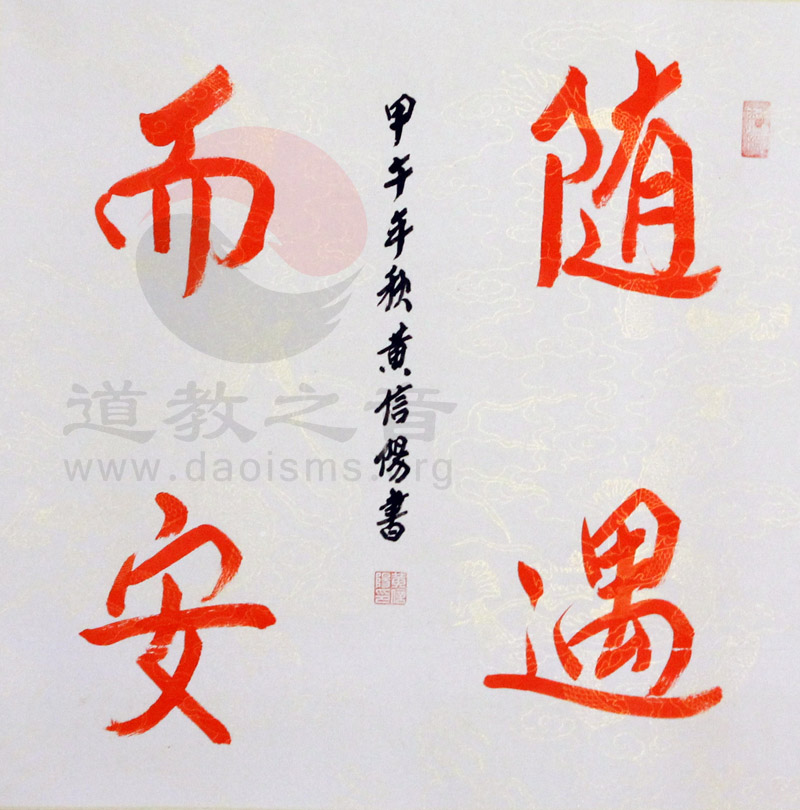 随遇
而安
甲午年秋黄信陽書
道教之音
www.daoisms.org